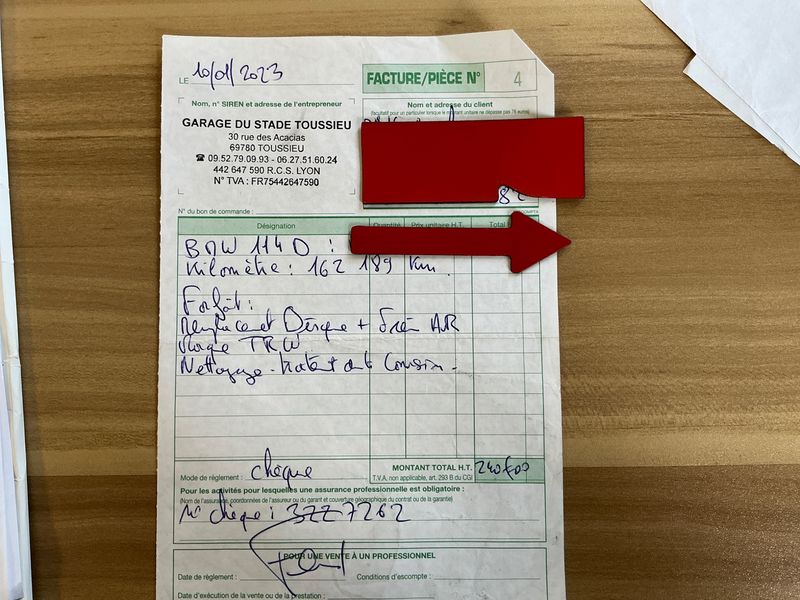 LE 10/01/2023
FACTURE/PIÈCE N° 4
Nom, n° SIREN et adresse de l'entrepreneur
Nom et adresse du client
(facultatif pour un particulier lorsque le montant unitaire ne dépasse pas 76 euros)
GARAGE DU STADE TOUSSIEU
30 rue des Acacias
69780 TOUSSIEU
☎ 09.52.79.09.93 - 06.27.51.60.24
442 647 590 R.C.S. LYON
N° TVA : FR75442647590
N° du bon de commande :
Désignation Quantité Prix unitaire H.T. Total
BMW 114D :
Kilomètre : 162 189 Km.
Forfait :
Remplacement Disque + Frein AR
Marque TRW
Nettoyage
Mode de règlement : chèque
MONTANT TOTAL H.T. 240€00
T.V.A. non applicable, art. 293 B du CGI
Pour les activités pour lesquelles une assurance professionnelle est obligatoire :
(Nom de l'assureur, coordonnées de l'assureur ou du garant et couverture géographique du contrat ou de la garantie)
N° chèque : 3227262
POUR UNE VENTE À UN PROFESSIONNEL
Date de règlement : Conditions d'escompte :
Date d'exécution de la vente ou de la prestation :